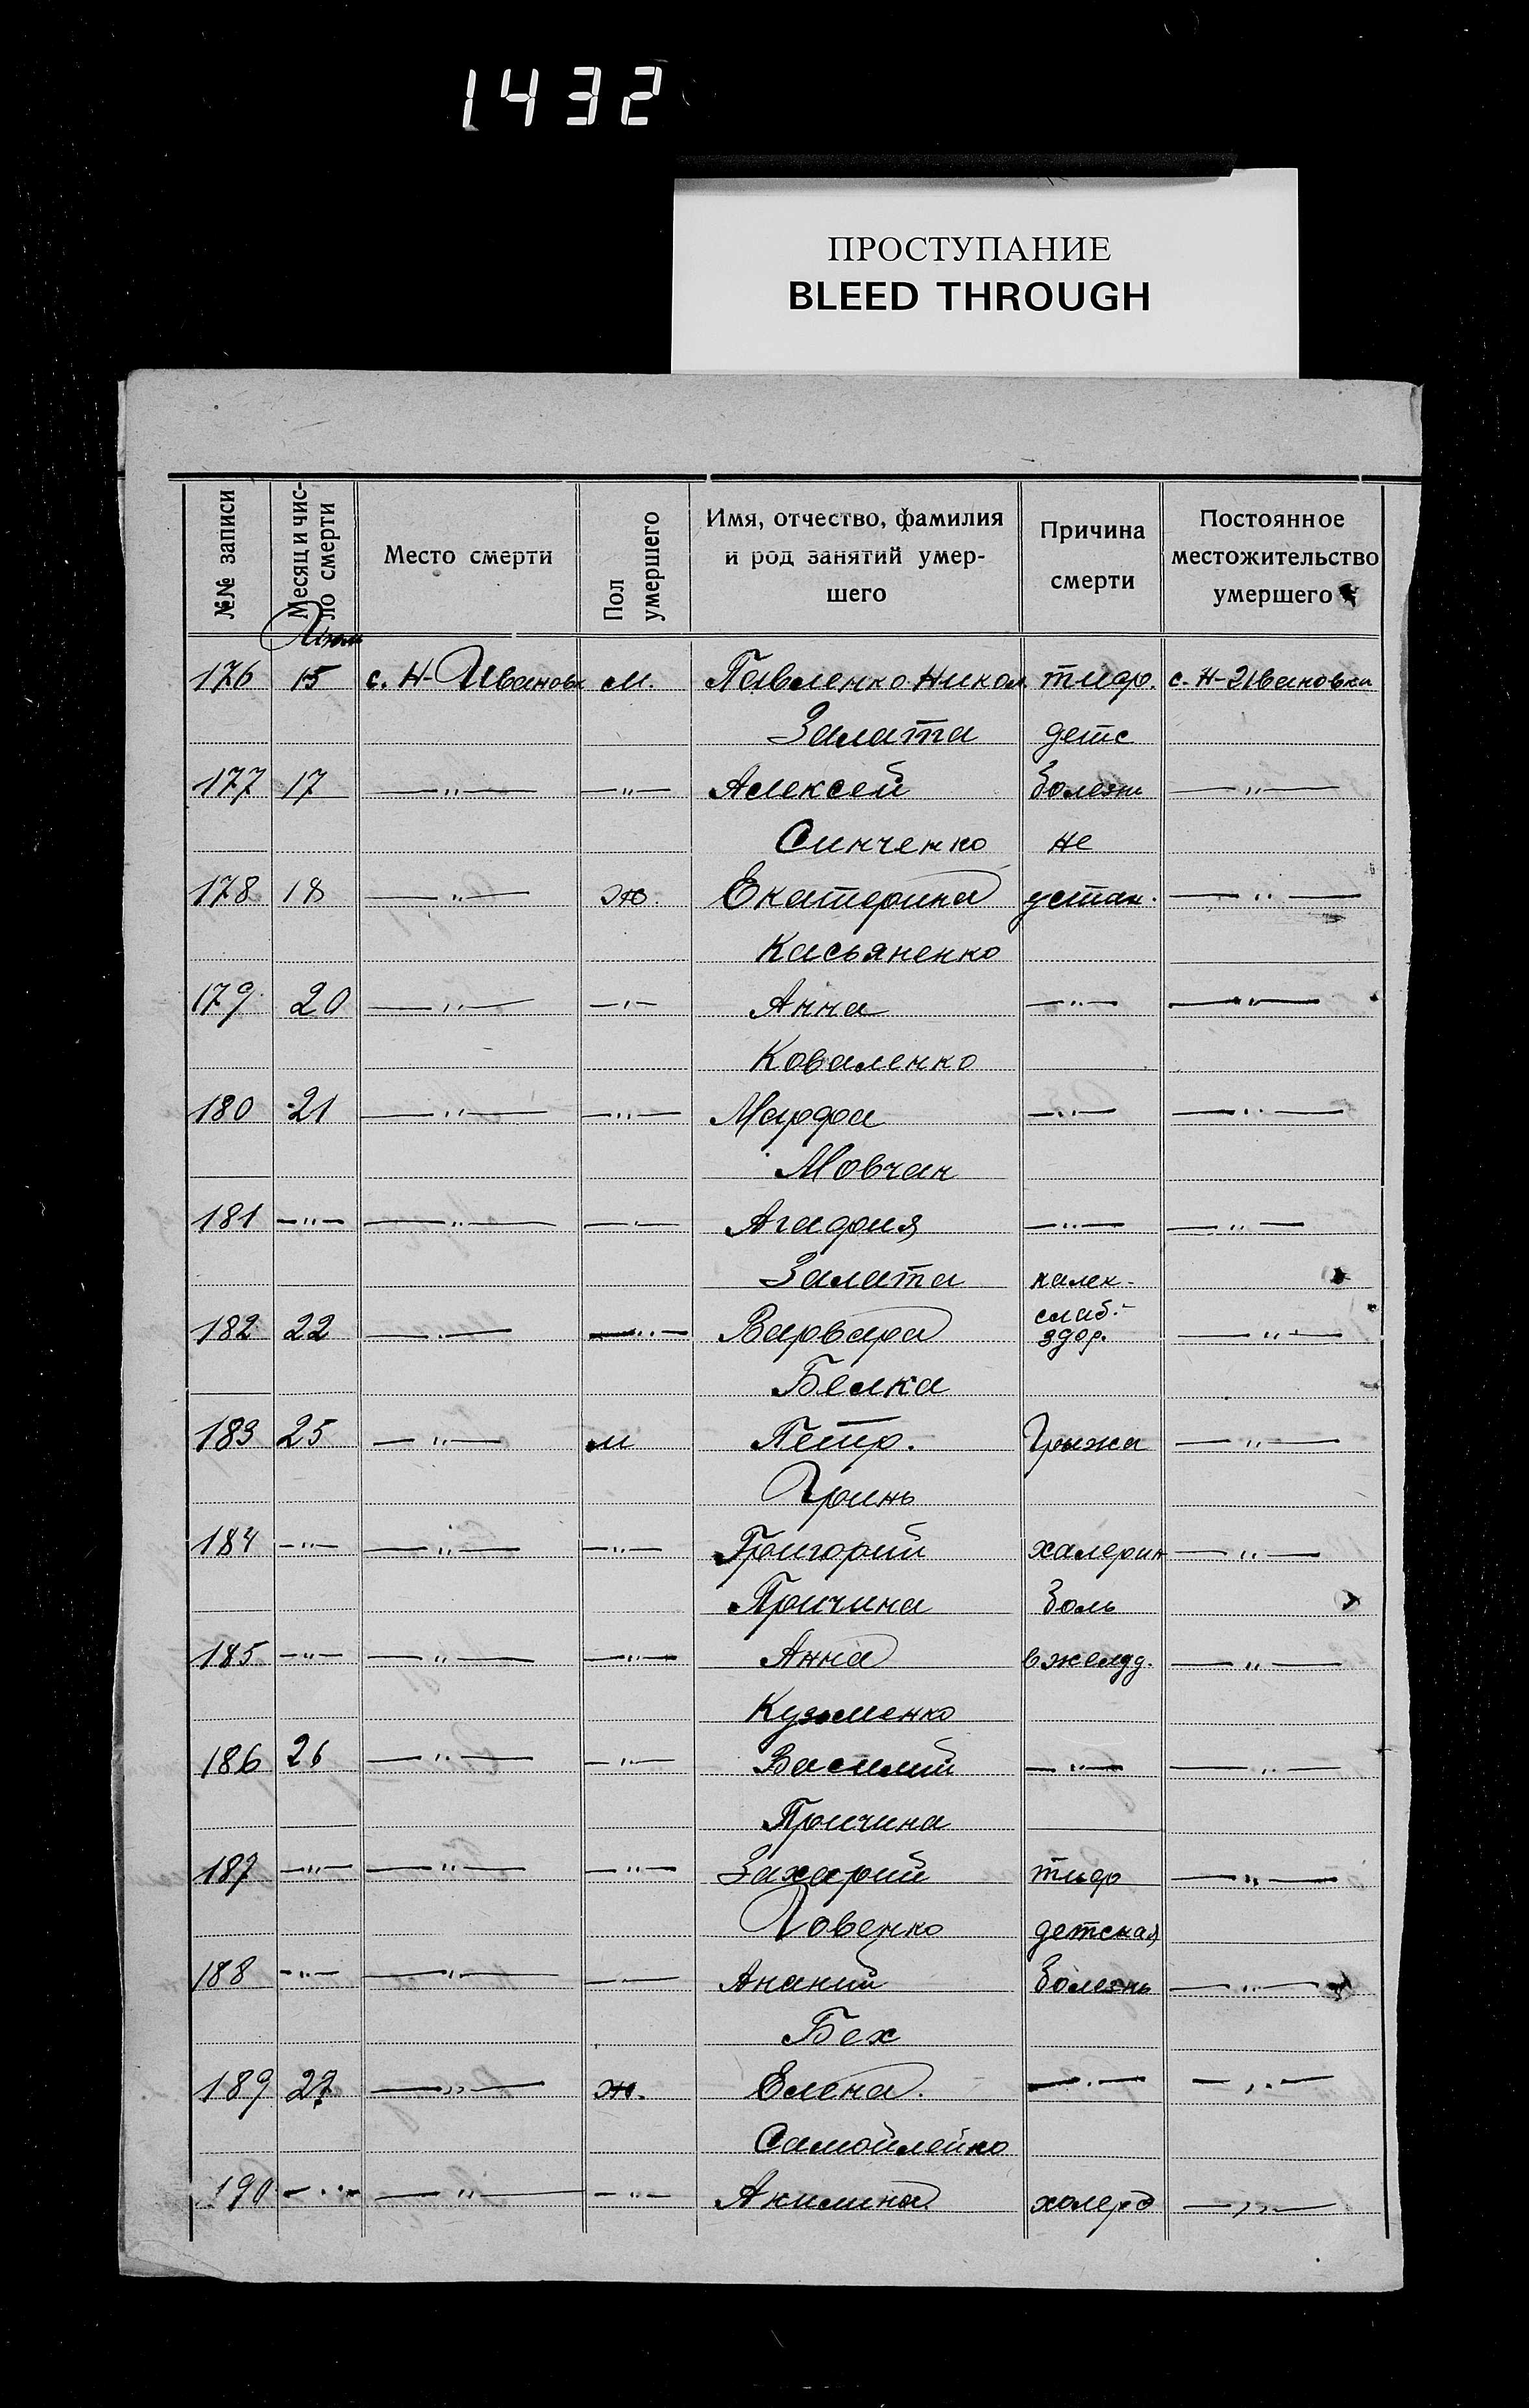 1432
ПРОСТУПАНИЕ
BLEED THROUGH
№№ записи
Месяц и чис-
ло смерти
Место смерти
Пол
умершего
Имя, отчество, фамилия
и род занятий умер-
шего
Причина
смерти
Постоянное
местожительство
умершего
176 15 с. Н-Ивановк м. Павленко Никол. тиф. с. Н-Ивановки
Залата детс
177 17 —"— —"— Алексей болезн —"—
Синченко не
178 18 —"— ж. Екатерина устан. —"—
Касьяненко
179 20 —"— —"— Анна —"— —"—
Коваленко
180 21 —"— —"— Марфа —"— —"—
Мовчан
181 —"— —"— —"— Агафия —"— —"—
Залата калек-
слаб.-
182 22 —"— —"— Варвара здор. —"—
Белка
183 25 —"— м Петр. Грыжа —"—
Гринь
184 —"— —"— —"— Григорий халерин —"—
Причина боль
185 —"— —"— —"— Анна в желуд. —"—
Кузьменко
186 26 —"— —"— Василий —"— —"—
Причина
187 —"— —"— —"— Захарий тиф —"—
Ховенко детская
188 —"— —"— —"— Ананий болезнь —"—
Бех
189 27 —"— ж. Елена. —"— —"—
Самойленко
190 —"— —"— —"— Акилина холера —"—